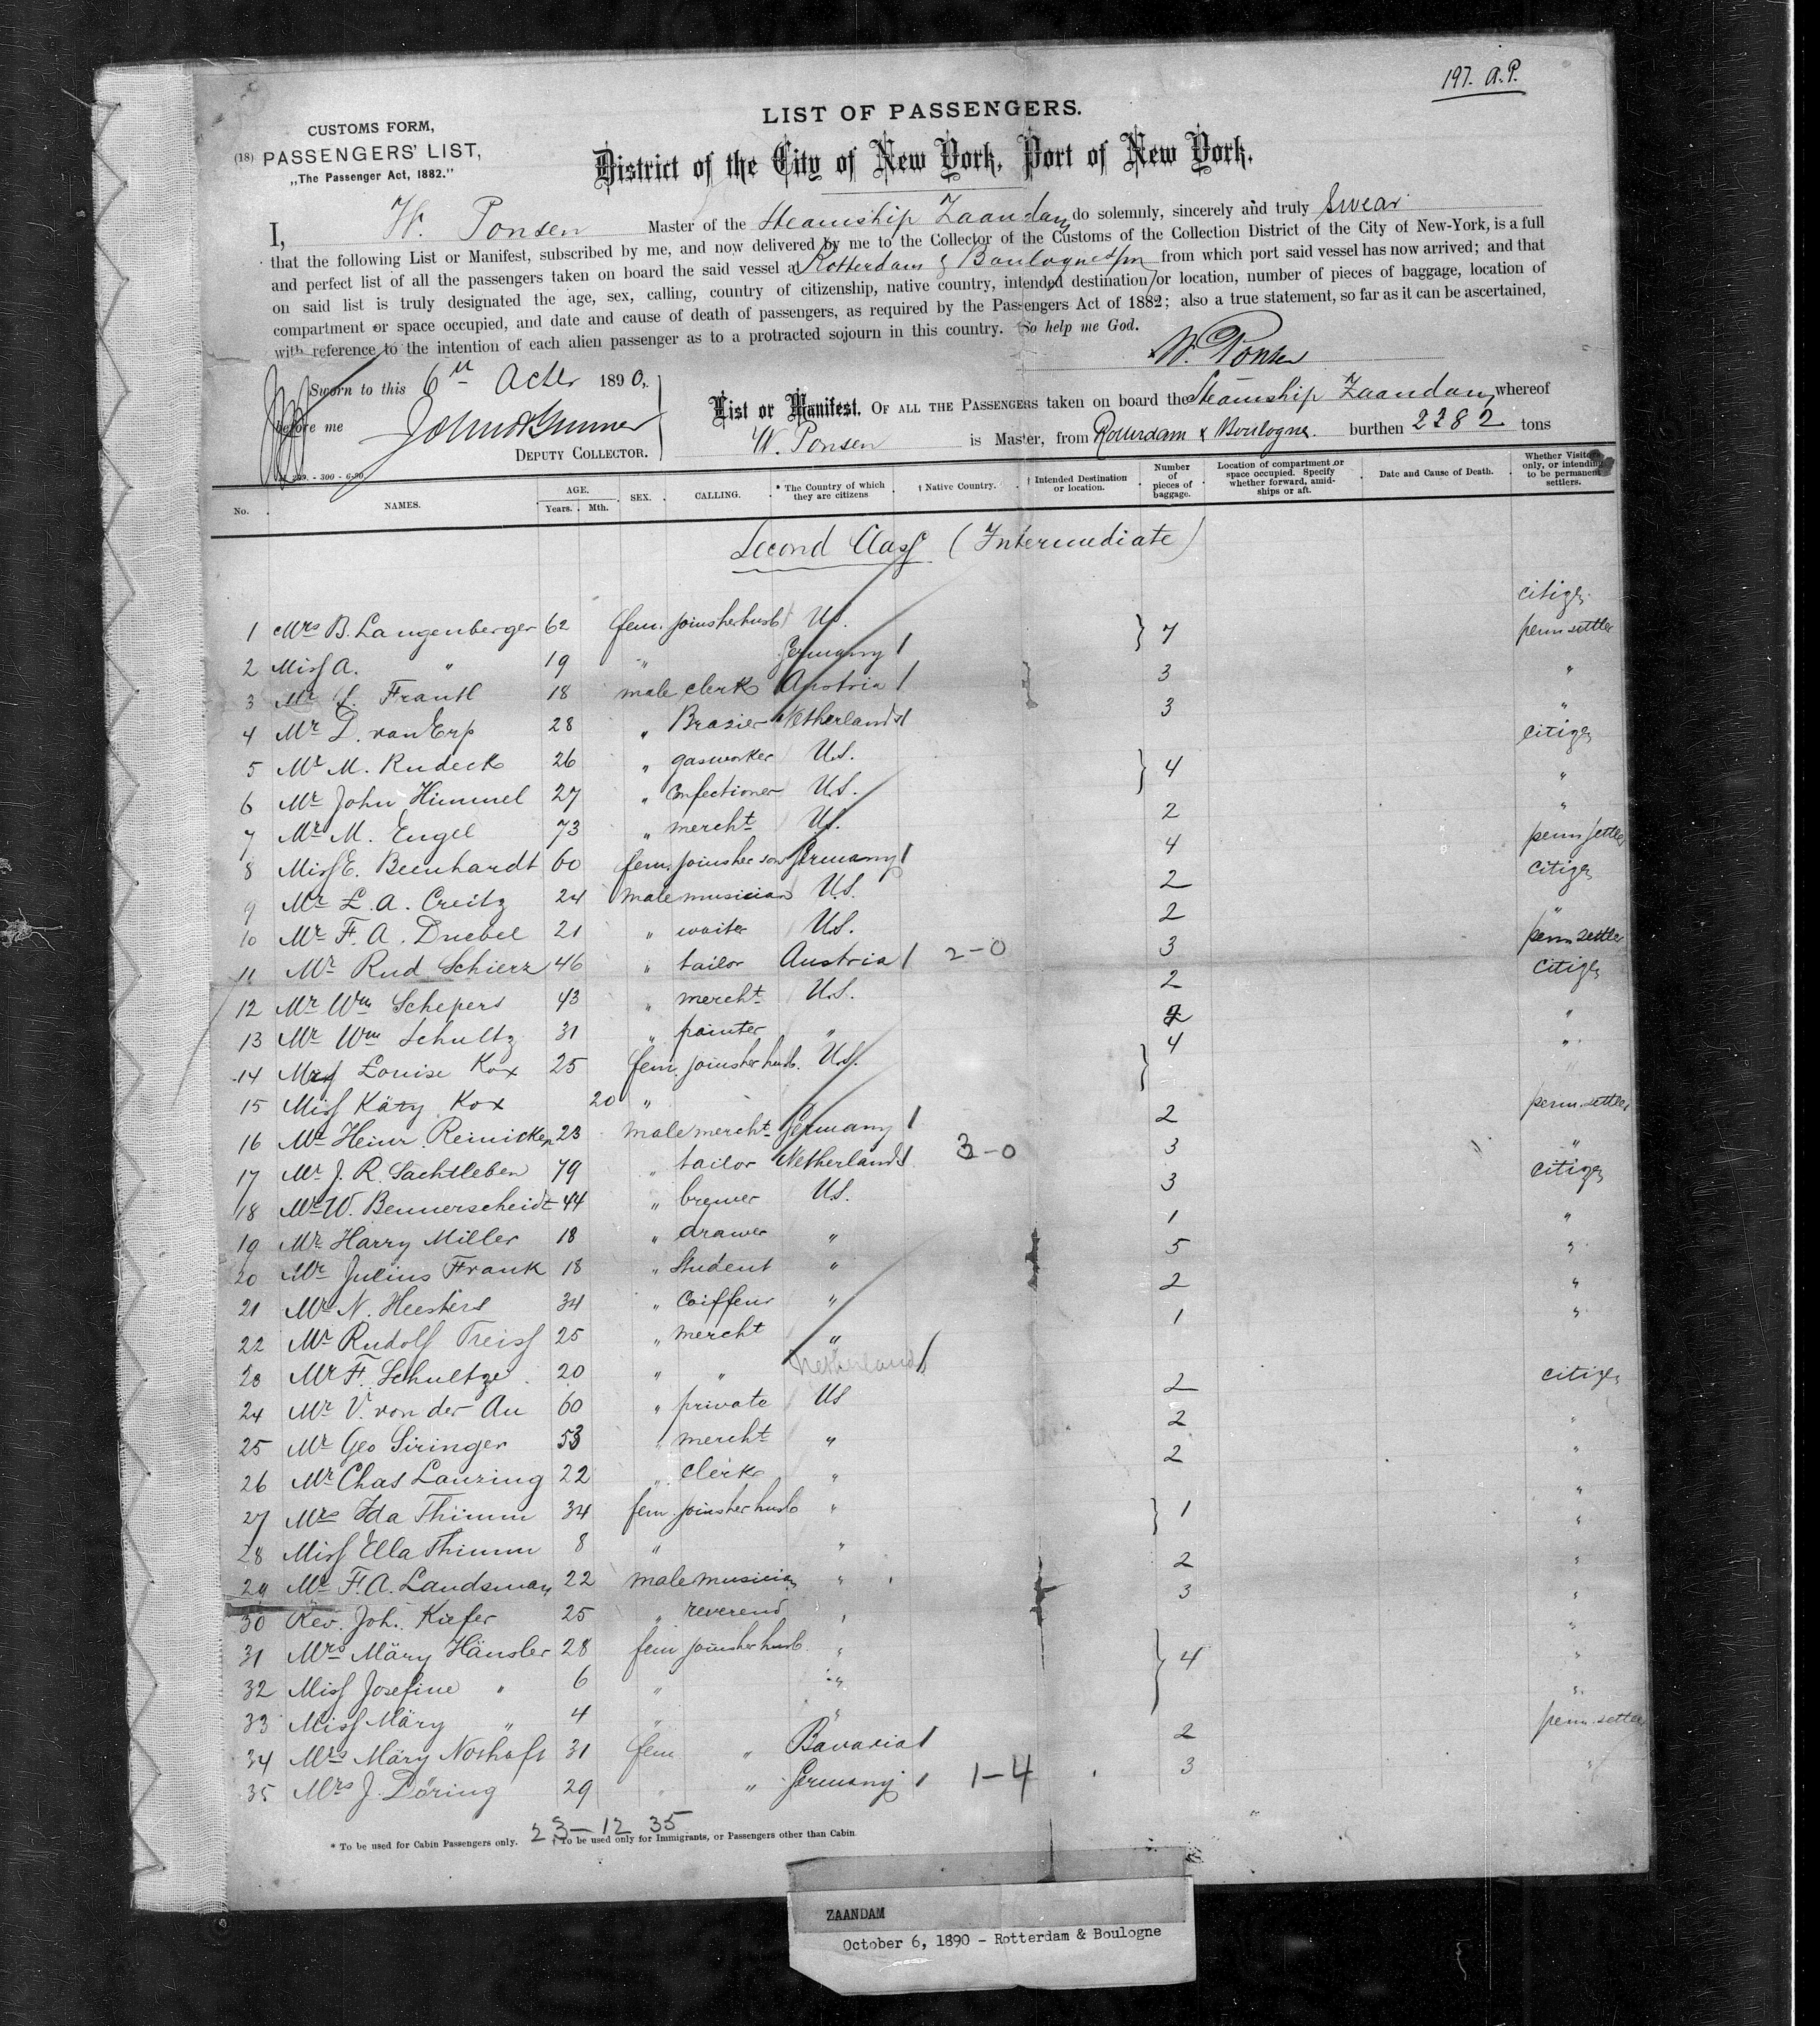 197. A.P.
LIST OF PASSENGERS.
CUSTOMS FORM,
(18) PASSENGERS' LIST,
„The Passenger Act, 1882.”
District of the City of New York, Port of New York.
I, W. Ponsen Master of the Steamship Zaandam do solemnly, sincerely and truly swear
that the following List or Manifest, subscribed by me, and now delivered by me to the Collector of the Customs of the Collection District of the City of New-York, is a full
and perfect list of all the passengers taken on board the said vessel a Rotterdam & Boulogne from which port said vessel has now arrived; and that
on said list is truly designated the age, sex, calling, country of citizenship, native country, intended destination or location, number of pieces of baggage, location of
compartment or space occupied, and date and cause of death of passengers, as required by the Passengers Act of 1882; also a true statement, so far as it can be ascertained,
with reference to the intention of each alien passenger as to a protracted sojourn in this country. So help me God.
W. Ponsen
Sworn to this 6th Octer 1890,
before me
DEPUTY COLLECTOR.
List or Manifest. OF ALL THE PASSENGERS taken on board the Steamship Zaandam whereof
W. Ponsen is Master, from Rotterdam & Boulogne. burthen 2282 tons
- 300 - 6-90.
No. NAMES. AGE. Years. Mth. SEX. CALLING. * The Country of which they are citizens † Native Country. † Intended Destination or location. Number of pieces of baggage. Location of compartment or space occupied. Specify whether forward, amidships or aft. Date and Cause of Death. Whether Visitors only, or intending to be permanent settlers.
Second Class (Intermediate)
1 Mrs B. Langenberger 62 fem. joins her husb U.S. } 7 citizen
2 Miss A. " 19 " Germany perm settler
3 Mr Frankl 18 male clerk Austria 3 "
4 Mr D. van Erp 28 " Brasier Netherlands 3 "
5 Mr M. Rudeck 26 " gasworker U.S. } 4 citizen
6 Mr John Himmel 27 " Confectioner U.S. "
7 Mr M. Engel 73 " mercht U.S. 2 "
8 Miss E. Beenhardt 60 fem. joins her son Germany 4 perm settler
9 Mr L. A. Creitz 24 male musician U.S. 2 citizen
10 Mr F. A. Druebel 21 " waiter U.S. 2 "
11 Mr Rud Schierz 46 " tailor Austria 2-0 3 perm settler
12 Mr Wm Schepers 43 " mercht U.S. 2 citizen
13 Mr Wm Schultz 31 " painter " 2 "
14 Mrs Louise Kox 25 fem. joins her husb. U.S. } 4 "
15 Miss Käty Kox 20 " "
16 Mr Heinr. Reinicken 23 male mercht Germany 2 perm. settler
17 Mr J. R. Sachtleben 79 " tailor Netherlands 3-0 3 "
18 Mr W. Bennerscheidt 44 " brewer U.S. 3 citizen
19 Mr Harry Miller 18 " drawer " 1 "
20 Mr Julius Frank 18 " Student " 5 "
21 Mr N. Heesters 34 " Coiffeur " 2 "
22 Mr Rudolf Treiss 25 " mercht " 1 "
23 Mr F. Schultze 20 " " Netherlands
24 Mr V. von der Au 60 " private US 2 citizen
25 Mr Geo Siringer 53 " mercht " 2 "
26 Mr Chas Lanzing 22 " Clerk " 2 "
27 Mrs Ida Thimm 34 fem joins her husb " } 1 "
28 Miss Ella Thimm 8 " " "
29 Mr F. A. Landsman 22 male musician " 2 "
30 Rev. Joh. Kiefer 25 " reverend " 3 "
31 Mrs Märy Hänsler 28 fem joins her husb. " } 4 "
32 Miss Josefine " 6 " " "
33 Miss Märy " 4 " " "
34 Mrs Märy Nothaft 31 fem " Bavaria 2 perm. settler
35 Mrs J. Döring 29 " " Germany 1-4 3 "
23-12 35
* To be used for Cabin Passengers only. † To be used only for Immigrants, or Passengers other than Cabin.
ZAANDAM
October 6, 1890 - Rotterdam & Boulogne